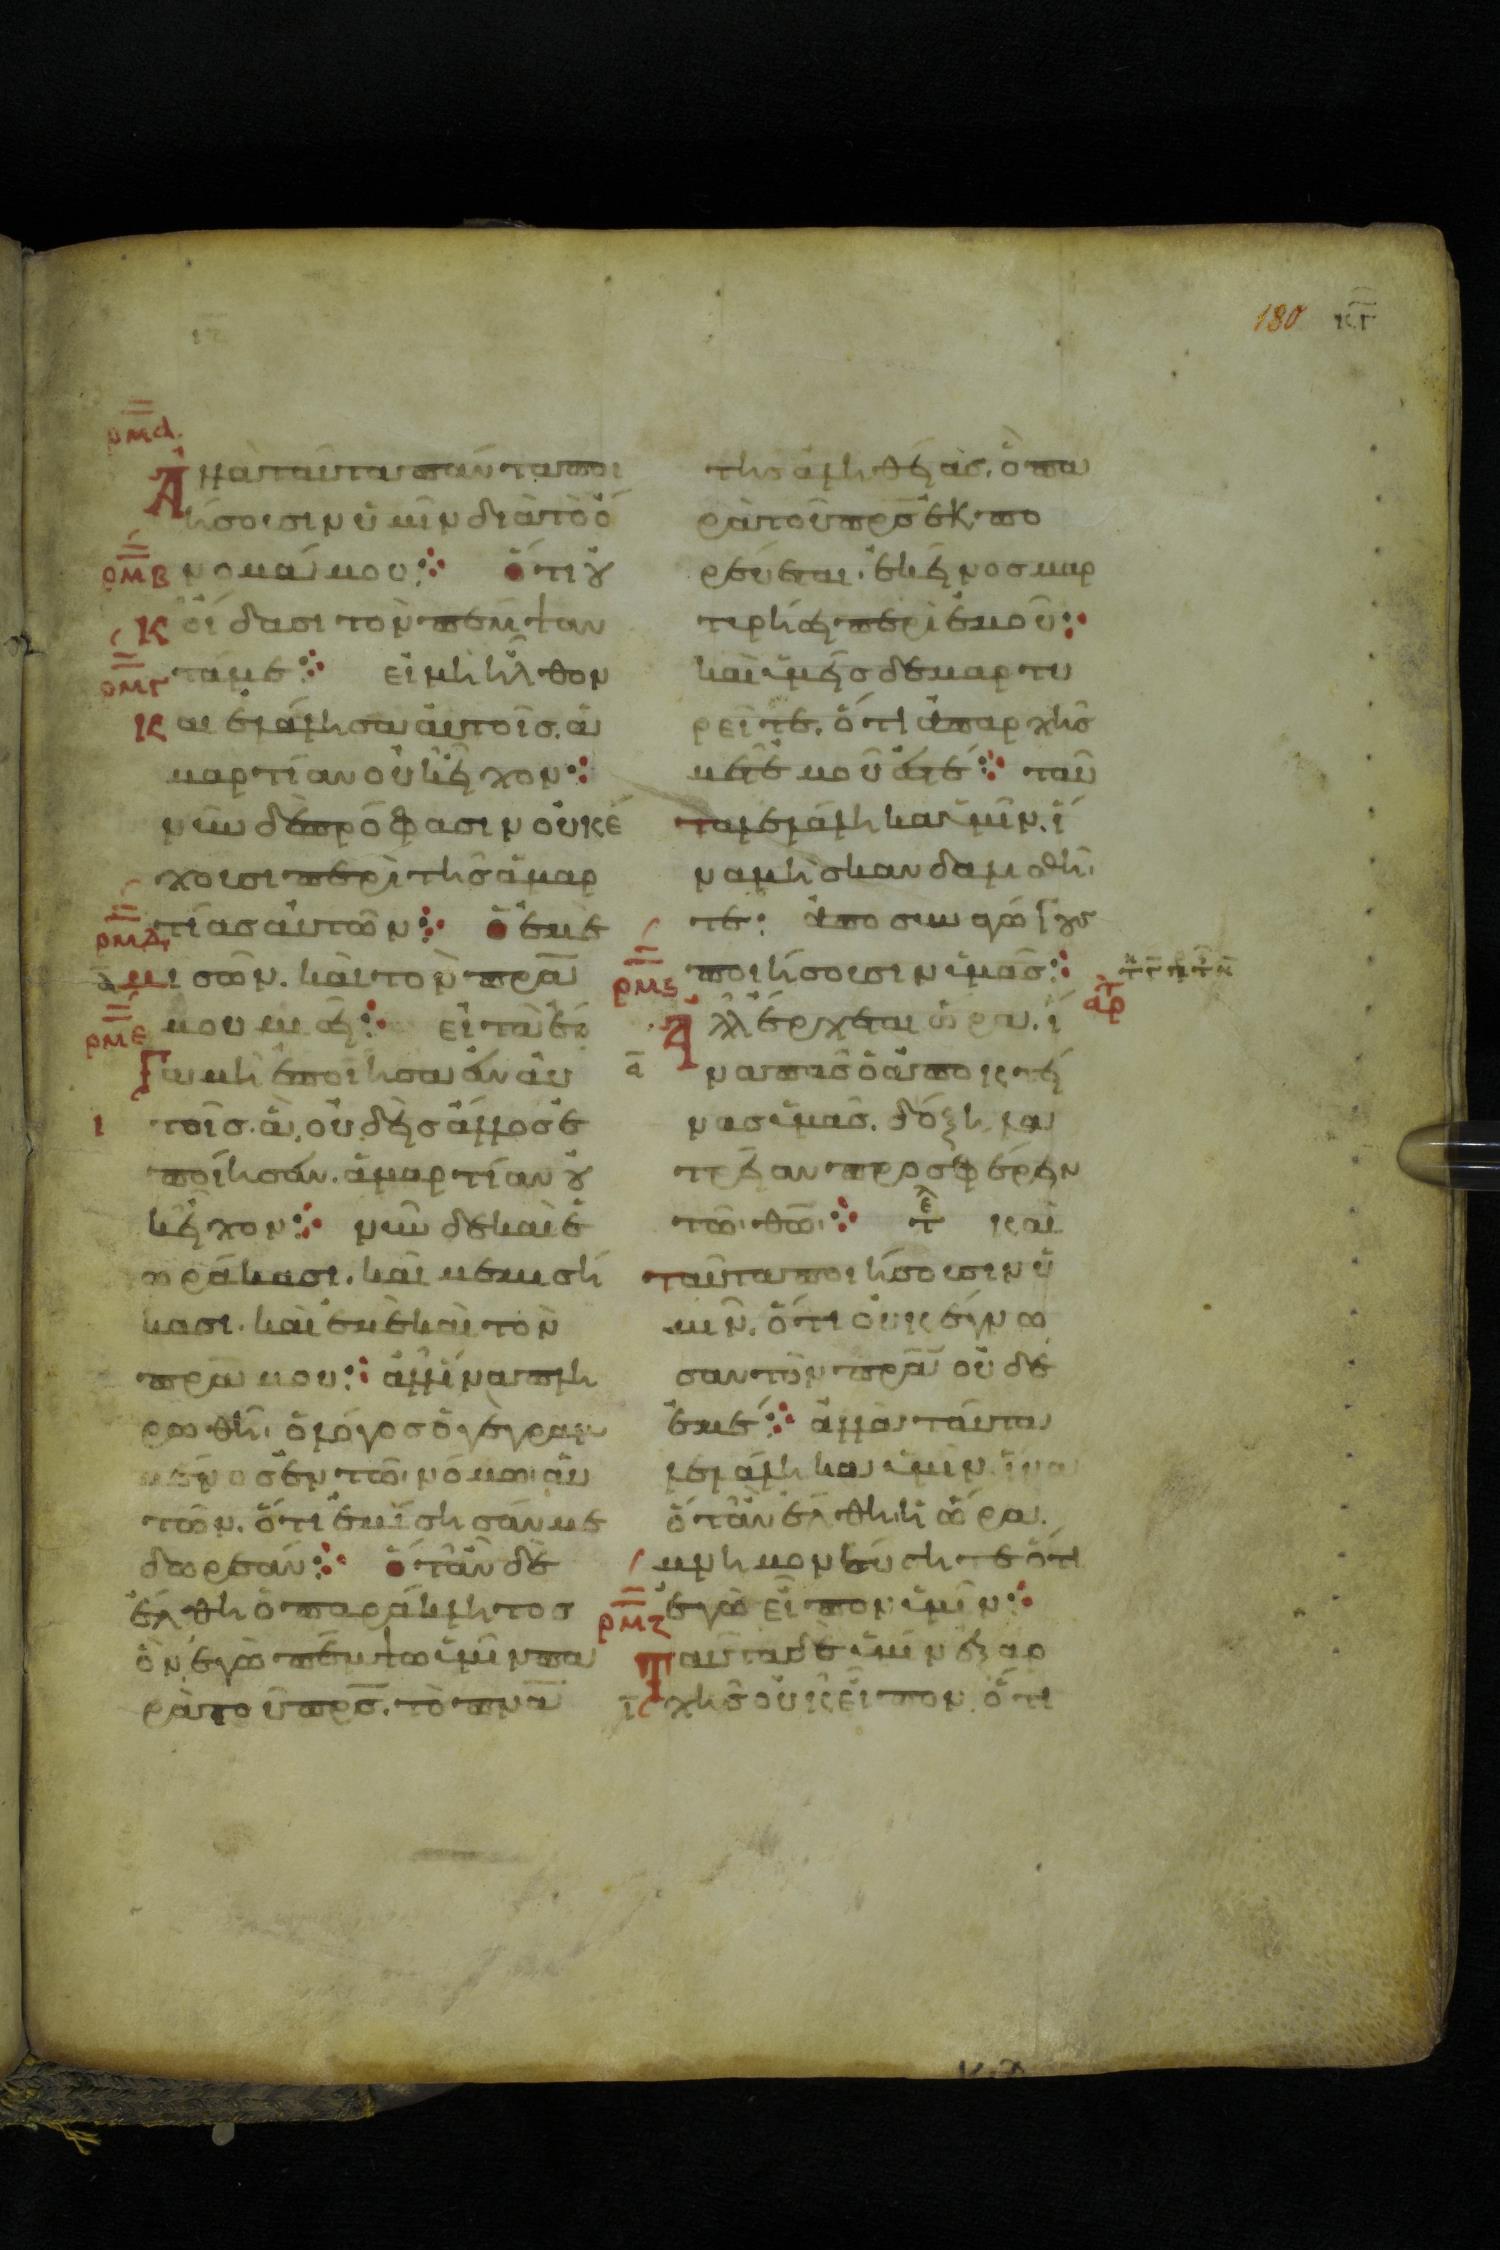 180 κγ
ρμα
Ἀλλὰ ταῦτα πάντα ποι
ήσουσιν ὑμῖν διὰ τὸ ὄ
ρμβ νομά μου: ὅτι οὐ
κ οἴδασι τὸν πέμψαν
ρμγ τά με: εἰ μὴ ἦλθον
καὶ ἐλάλησα αὐτοῖς. ἁ
μαρτίαν οὐκ εἶχον:
νῦν δὲ πρόφασιν οὐκ ἔ
χουσι περὶ τῆς ἁμαρ
ρμδ τίας αὐτῶν: ὁ ἐμὲ
μισῶν. καὶ τὸν πρ̅α̅
ρμε μου μισεῖ: εἰ τὰ ἔρ
γα μὴ ἐποίησα ἐν αὐ
ι τοῖς. ἃ οὐδεὶς ἄλλος ἐ
ποίησεν. ἁμαρτίαν οὐ
κ εἶχον: νῦν δὲ καὶ ἑ
ωράκασι. καὶ μεμισή
κασι. καὶ ἐμὲ καὶ τὸν
πρ̅α̅ μου: ἀλλ' ἵνα πλη
ρωθῆ ὁ λόγος ὁ γεγραμ
μένος ἐν τῶ νόμω αὐ
τῶν. ὅτι ἐμίσησάν με
δωρεάν: ὅταν δὲ
ἔλθη ὁ παράκλητος
ὃν ἐγὼ πέμψω ὑμῖν πα
ρὰ τοῦ πρ̅ς̅. τὸ πν̅α̅
τῆς ἀληθείας. ὃ πα
ρὰ τοῦ πρ̅ς̅ ἐκπο
ρεύεται. ἐκεῖνος μαρ
τυρήσει περὶ ἐμοῦ:
καὶ ὑμεῖς δὲ μαρτυ
ρεῖτε. ὅτι ἀπ' ἀρχῆς
μετ' ἐμοῦ ἐστέ: ταῦ
τα λελάληκα ὑμῖν. ἵ
να μὴ σκανδαλισθῆ
τε: ἀποσυναγώγους
ρμς ποιήσουσιν ὑμᾶς:
αρ
Ἀλλ' ἔρχεται ὥρα. ἵ
α να πᾶς ὁ ἀποκτεί
νας ὑμᾶς. δόξη λα
τρείαν προσφέρειν
τῶ θ̅ω̅: τε καὶ
ταῦτα ποιήσουσιν ὑ
μῖν. ὅτι οὐκ ἔγνω
σαν τὸν πρ̅α̅ οὐδὲ
ἐμέ: ἀλλὰ ταῦτα
λελάληκα ὑμῖν. ἵνα
ὅταν ἔλθη ἡ ὥρα.
μνημονεύητε ὅτι
ρμζ ἐγὼ εἶπον ὑμῖν:
Ταῦτα δὲ ὑμῖν ἐξ ἀρ
χῆς οὐκ εἶπον. ὅτι